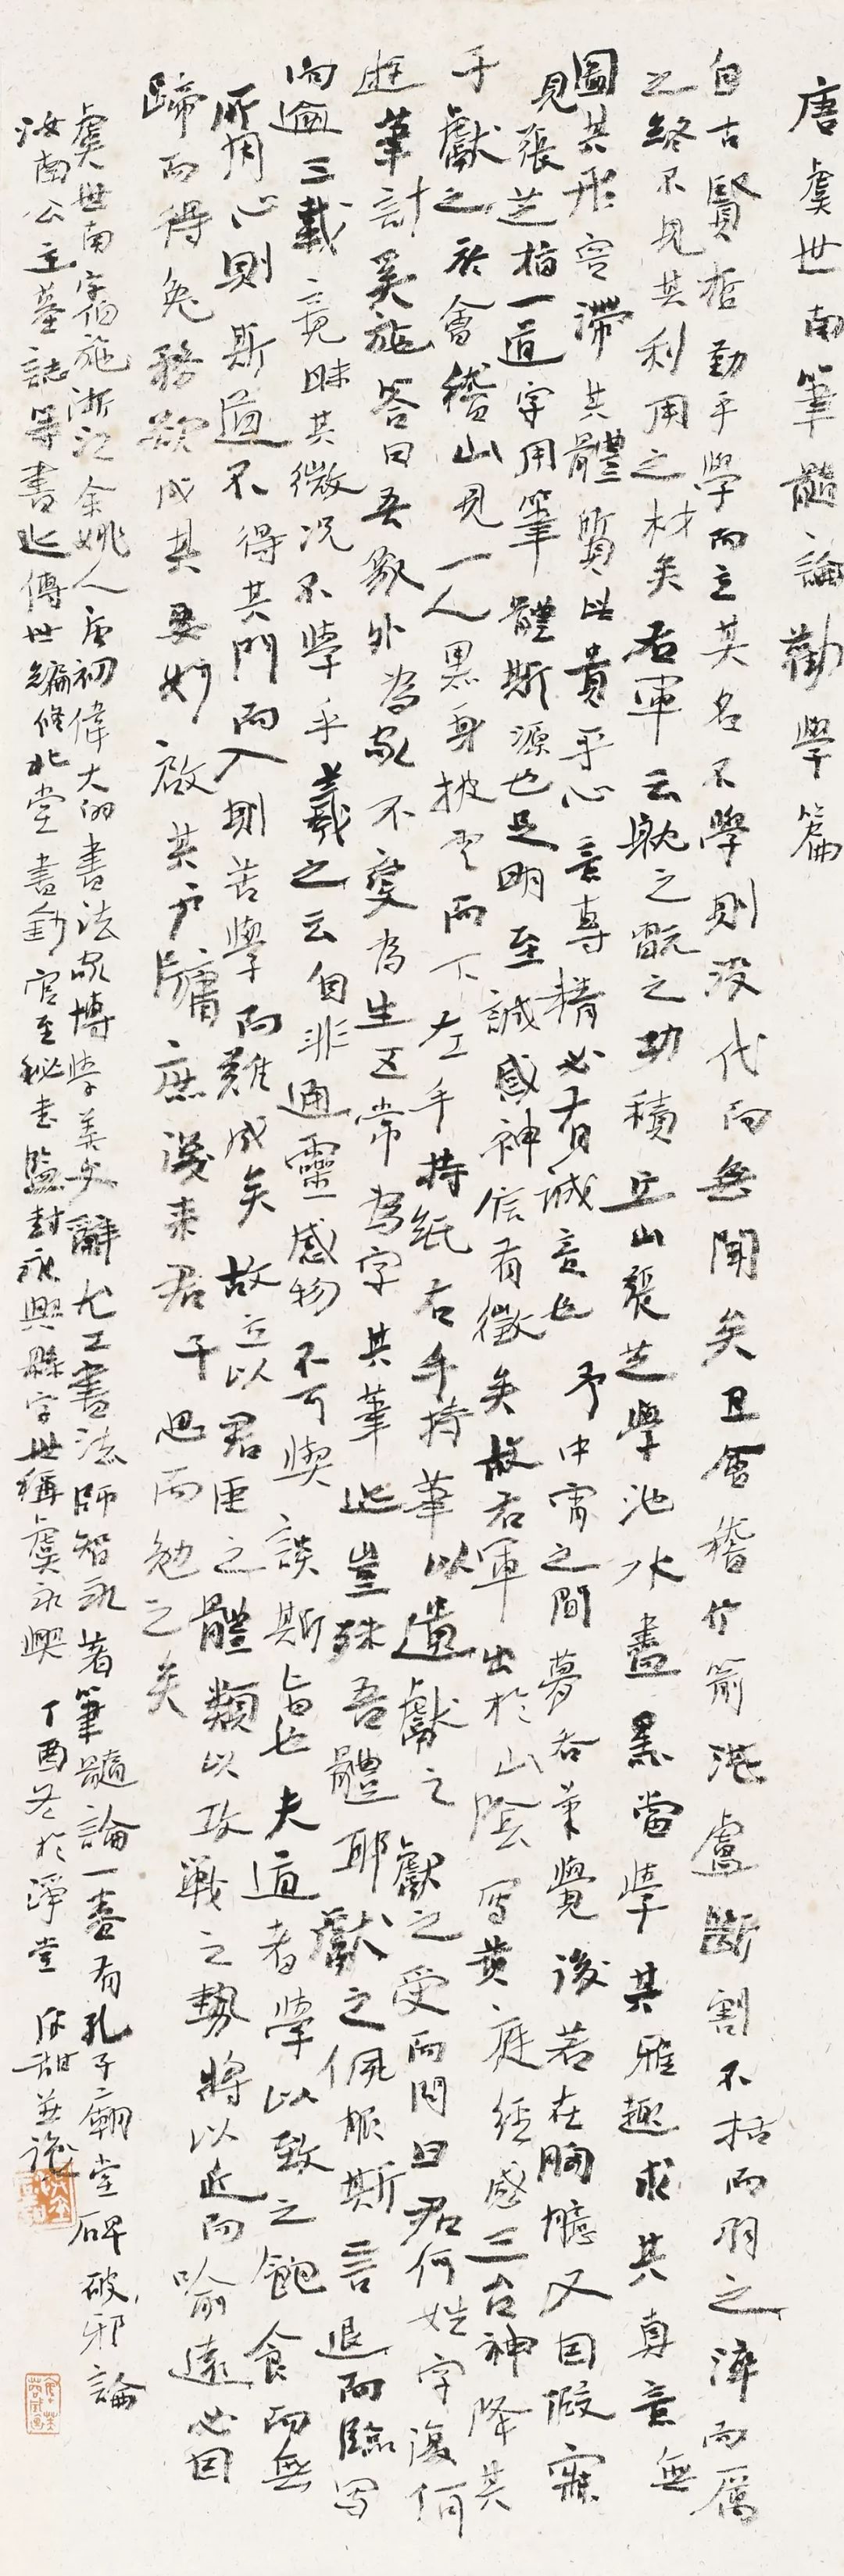 唐虞世南筆髓論勸學篇
自古賢哲勤乎學而立其名不學則沒代而無聞矣且會稽竹箭湛盧斷割不括而羽之淬而厲
之終不見其利用之材矣右軍云耽之翫之功積丘山張芝學池水盡黑當學其雅趣求其真意無
圖其形容滯其體質此貴乎心意專精必有誠意也予中宵之間夢吞筆覺後若在胸臆又因假寐
見張芝指一道字用筆體斯源也足明至誠感神信有徵矣故右軍出於山陰寫黃庭經感三台神降其
子獻之於會稽山見一人黑身披雲而下左手持紙右手持筆以遺獻之獻之受而問曰君何姓字復何
遊筆計奚施答曰吾象外為家不變為生五常為字其筆迹豈殊吾體耶獻之佩服斯言退而臨寫
向逾三載竟昧其微況不學乎羲之云自非通靈感物不可與談斯旨也夫道者學以致之飽食而無
所用心則斯道不得其門而入則苦學而難成矣故立以君臣之體類以攻戰之勢將以近而喻遠必因
蹄而得兔務欲成其要妙啟其戶牖庶後來君子思而勉之矣
虞世南字伯施浙江余姚人唐初偉大的書法家博學美文辭尤工書法師智永著筆髓論一書有孔子廟堂碑破邪論
汝南公主墓誌等書迹傳世編修北堂書鈔官至秘書監封永興縣字世稱虞永興丁酉冬於淨堂甜並識